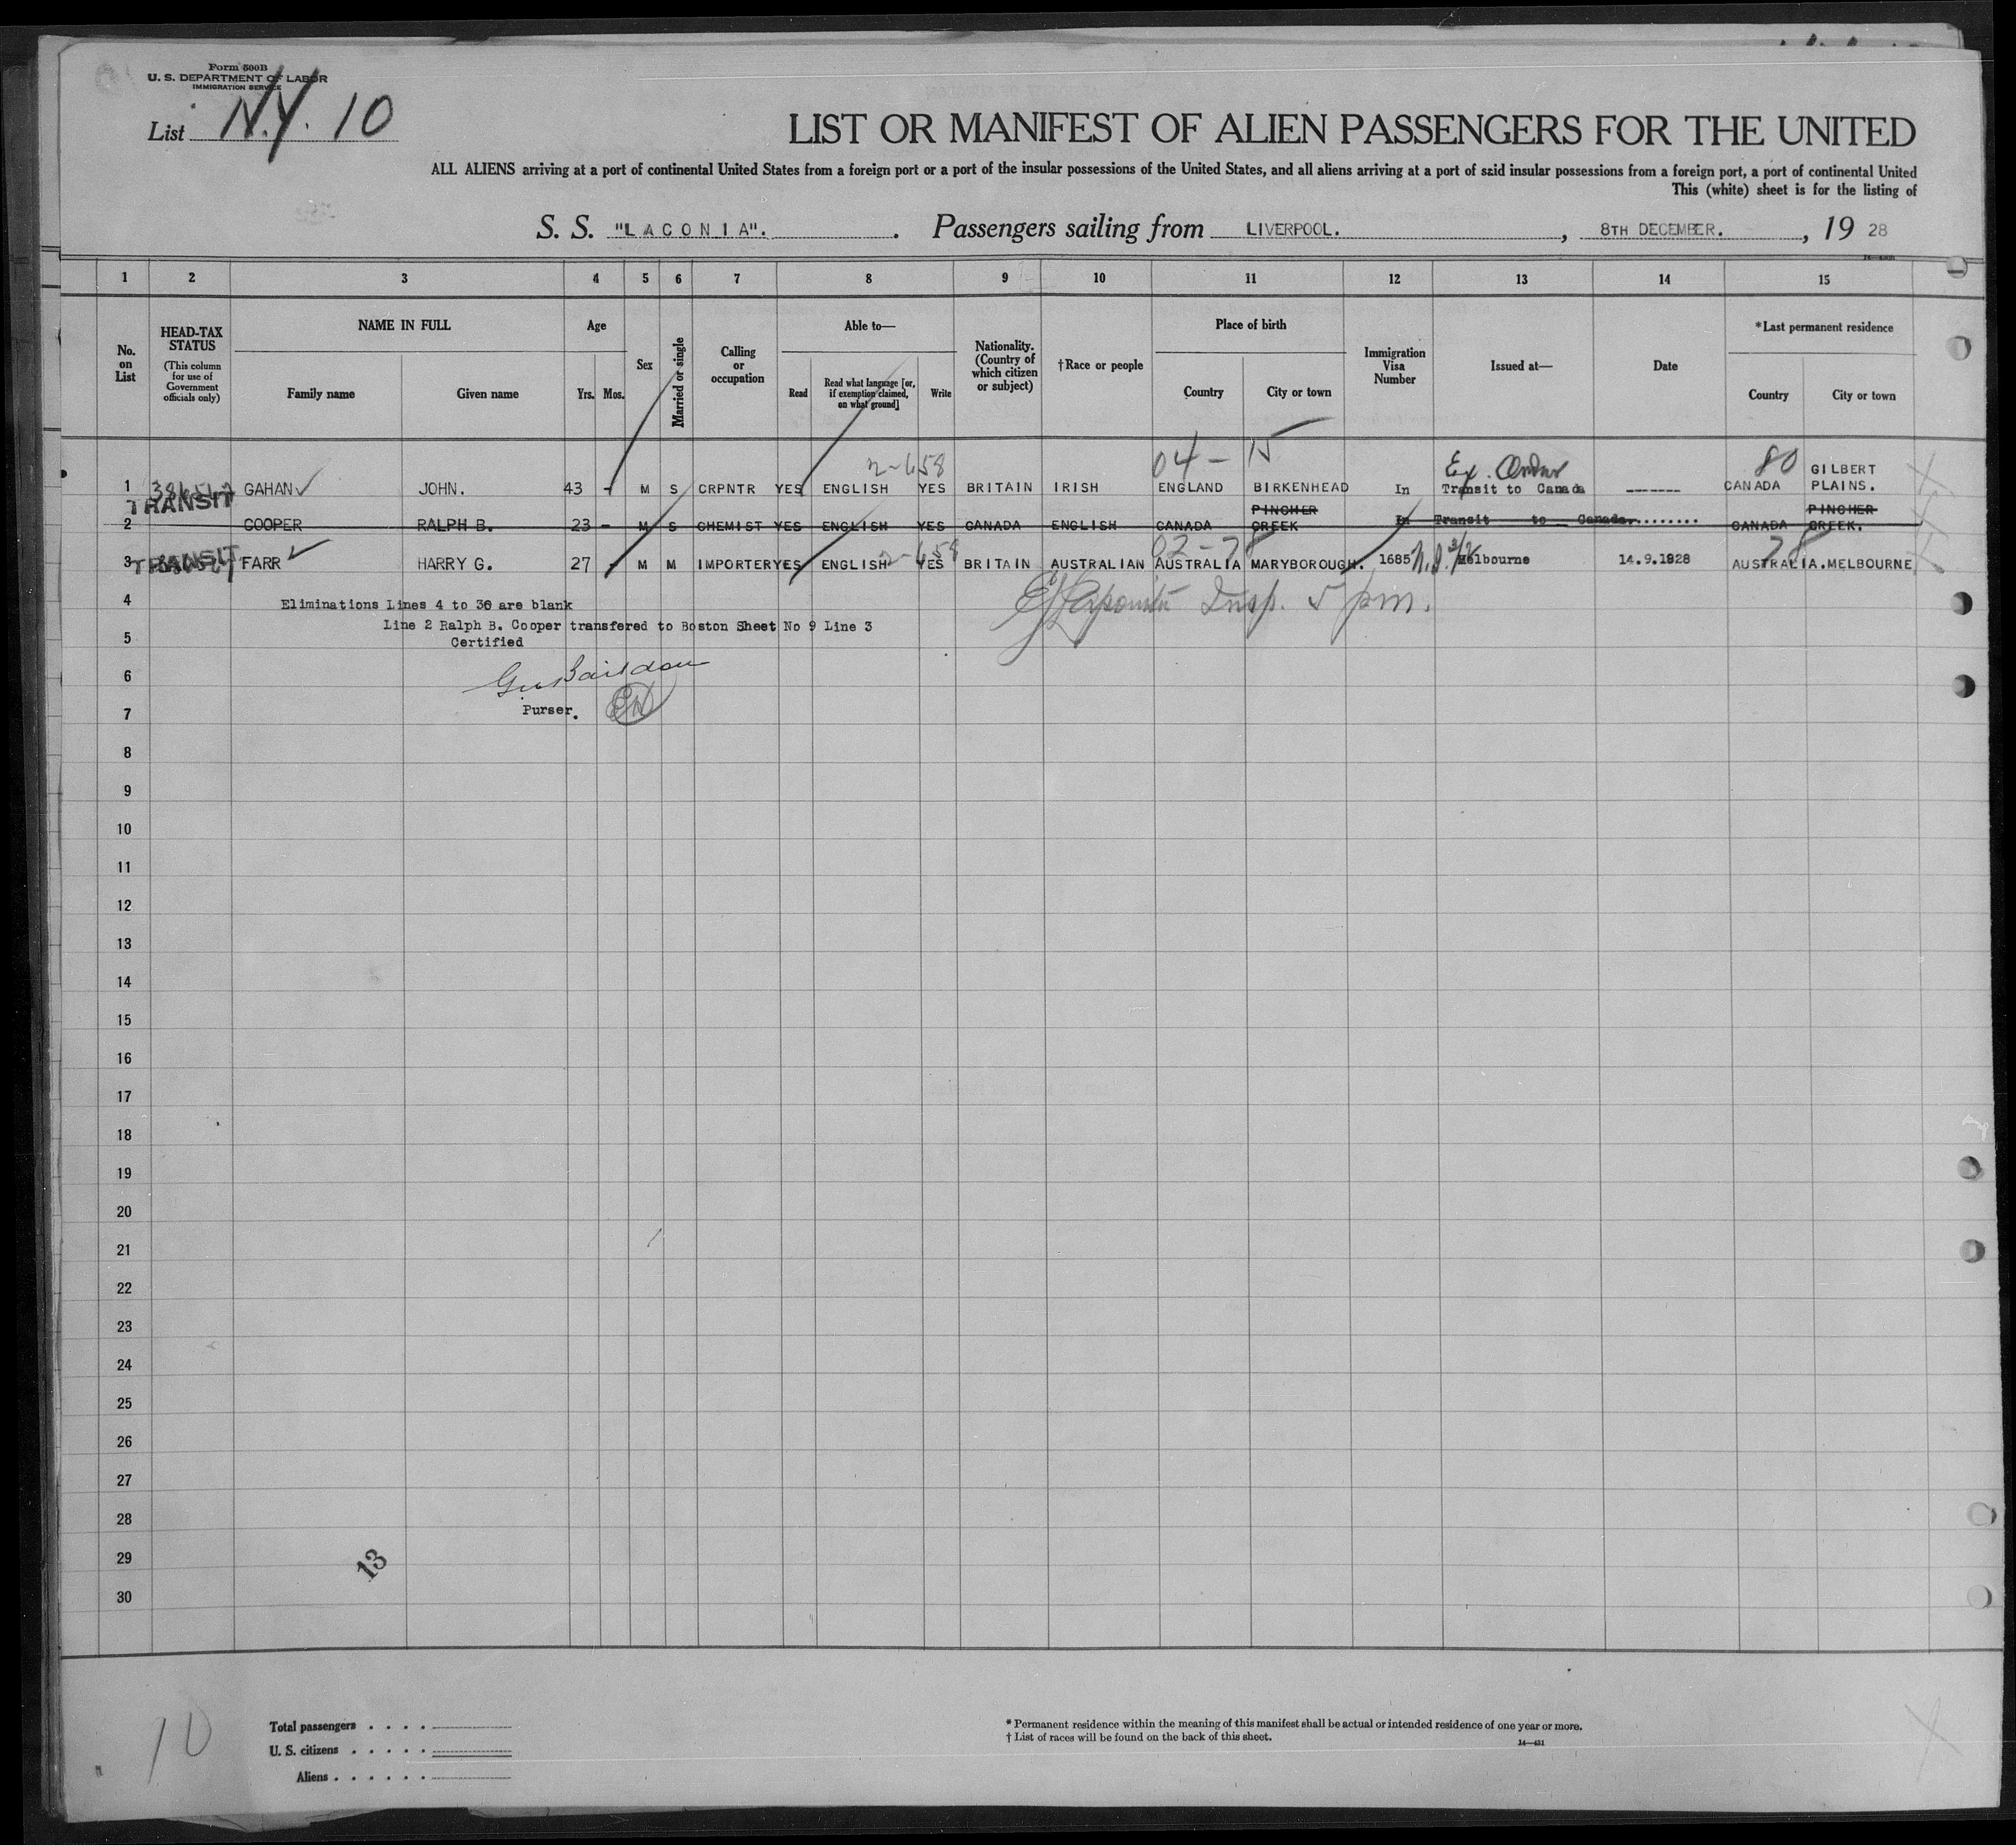 Form 500B
U. S. DEPARTMENT OF LABOR
IMMIGRATION SERVICE
List N.Y. 10
LIST OR MANIFEST OF ALIEN PASSENGERS FOR THE UNITED
ALL ALIENS arriving at a port of continental United States from a foreign port or a port of the insular possessions of the United States, and all aliens arriving at a port of said insular possessions from a foreign port, a port of continental United
This (white) sheet is for the listing of
S. S. "LACONIA". Passengers sailing from LIVERPOOL. , 8TH DECEMBER. , 19 28
1 2 3 4 5 6 7 8 9 10 11 12 13 14 15
No. on List
HEAD-TAX STATUS (This column for use of Government officials only)
NAME IN FULL Family name Given name
Age Yrs. Mos.
Sex
Married or single
Calling or occupation
Able to— Read Read what language [or, if exemption claimed, on what ground] Write
Nationality. (Country of which citizen or subject)
†Race or people
Place of birth Country City or town
Immigration Visa Number
Issued at—
Date
*Last permanent residence Country City or town
2-658 04- 15 Ex. 80
1 TRANSIT GAHAN JOHN. 43 - M S CRPNTR YES ENGLISH YES BRITAIN IRISH ENGLAND BIRKENHEAD In Transit to Canada ------- CANADA GILBERT PLAINS.
2 COOPER RALPH B. 23 - M S CHEMIST YES ENGLISH YES CANADA ENGLISH CANADA PINCHER CREEK In Transit to Canada........ CANADA PINCHER CREEK.
02-78 78
3 TRANSIT FARR HARRY G. 27 - M M IMPORTER YES ENGLISH 2-658 YES BRITAIN AUSTRALIAN AUSTRALIA MARYBOROUGH. 1685 Melbourne 14.9.1928 AUSTRALIA. MELBOURNE
4 Eliminations Lines 4 to 30 are blank
Insp. 5 pm.
Line 2 Ralph B. Cooper transfered to Boston Sheet No 9 Line 3
5 Certified
6
7 Purser.
8
9
10
11
12
13
14
15
16
17
18
19
20
21
22
23
24
25
26
27
28
29
13
30
10
Total passengers . . . .
U. S. citizens . . . . .
Aliens . . . . . .
* Permanent residence within the meaning of this manifest shall be actual or intended residence of one year or more.
† List of races will be found on the back of this sheet.
14—431